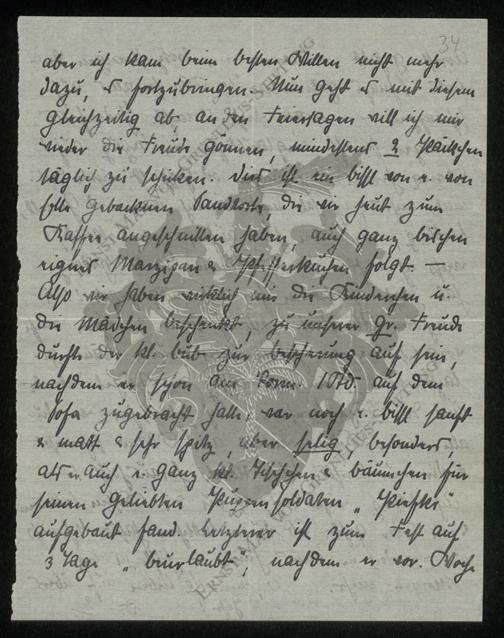 34
aber ich kam beim besten Willen nicht mehr
dazu, es fortzubringen. Nun geht es mit diesem
gleichzeitig ab, an den Feiertagen will ich mir
wieder die Freude gönnen, mindestens 2 Päckchen
täglich zu schicken. Dies ist ein bissl von e. von
gebackenen Sandtorte, die wir heut zum
Kaffee angeschnitten haben, auch ganz bischen
eignes Marzipan & Pfefferkuchen folgt. —
Also wir haben wirklich nur die Kinderchen u.
die Mädchen beschenkt, zu unserer gr. Freude
durfte der kl. bub zur bescherung auf sein,
nachdem er schon am Vorm. 1 Std. auf dem
Sofa zugebracht hatte, war noch e. bissl sanft
& matt & sehr spitz, aber selig, besonders,
als er auch e. ganz kl. Tischchen & bäumchen für
seinen geliebten Puppensoldaten "
aufgebaut fand. Letzterer ist zum Fest auf
3 Tage "beurlaubt", nachdem er vor. Woche